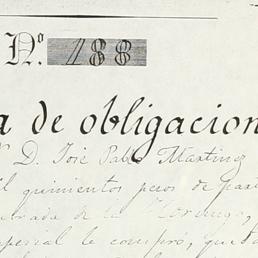 Nº. 188
a de obligacion
D. José Pablo Martinez
il quinientos pesos de
de la
le compró, que